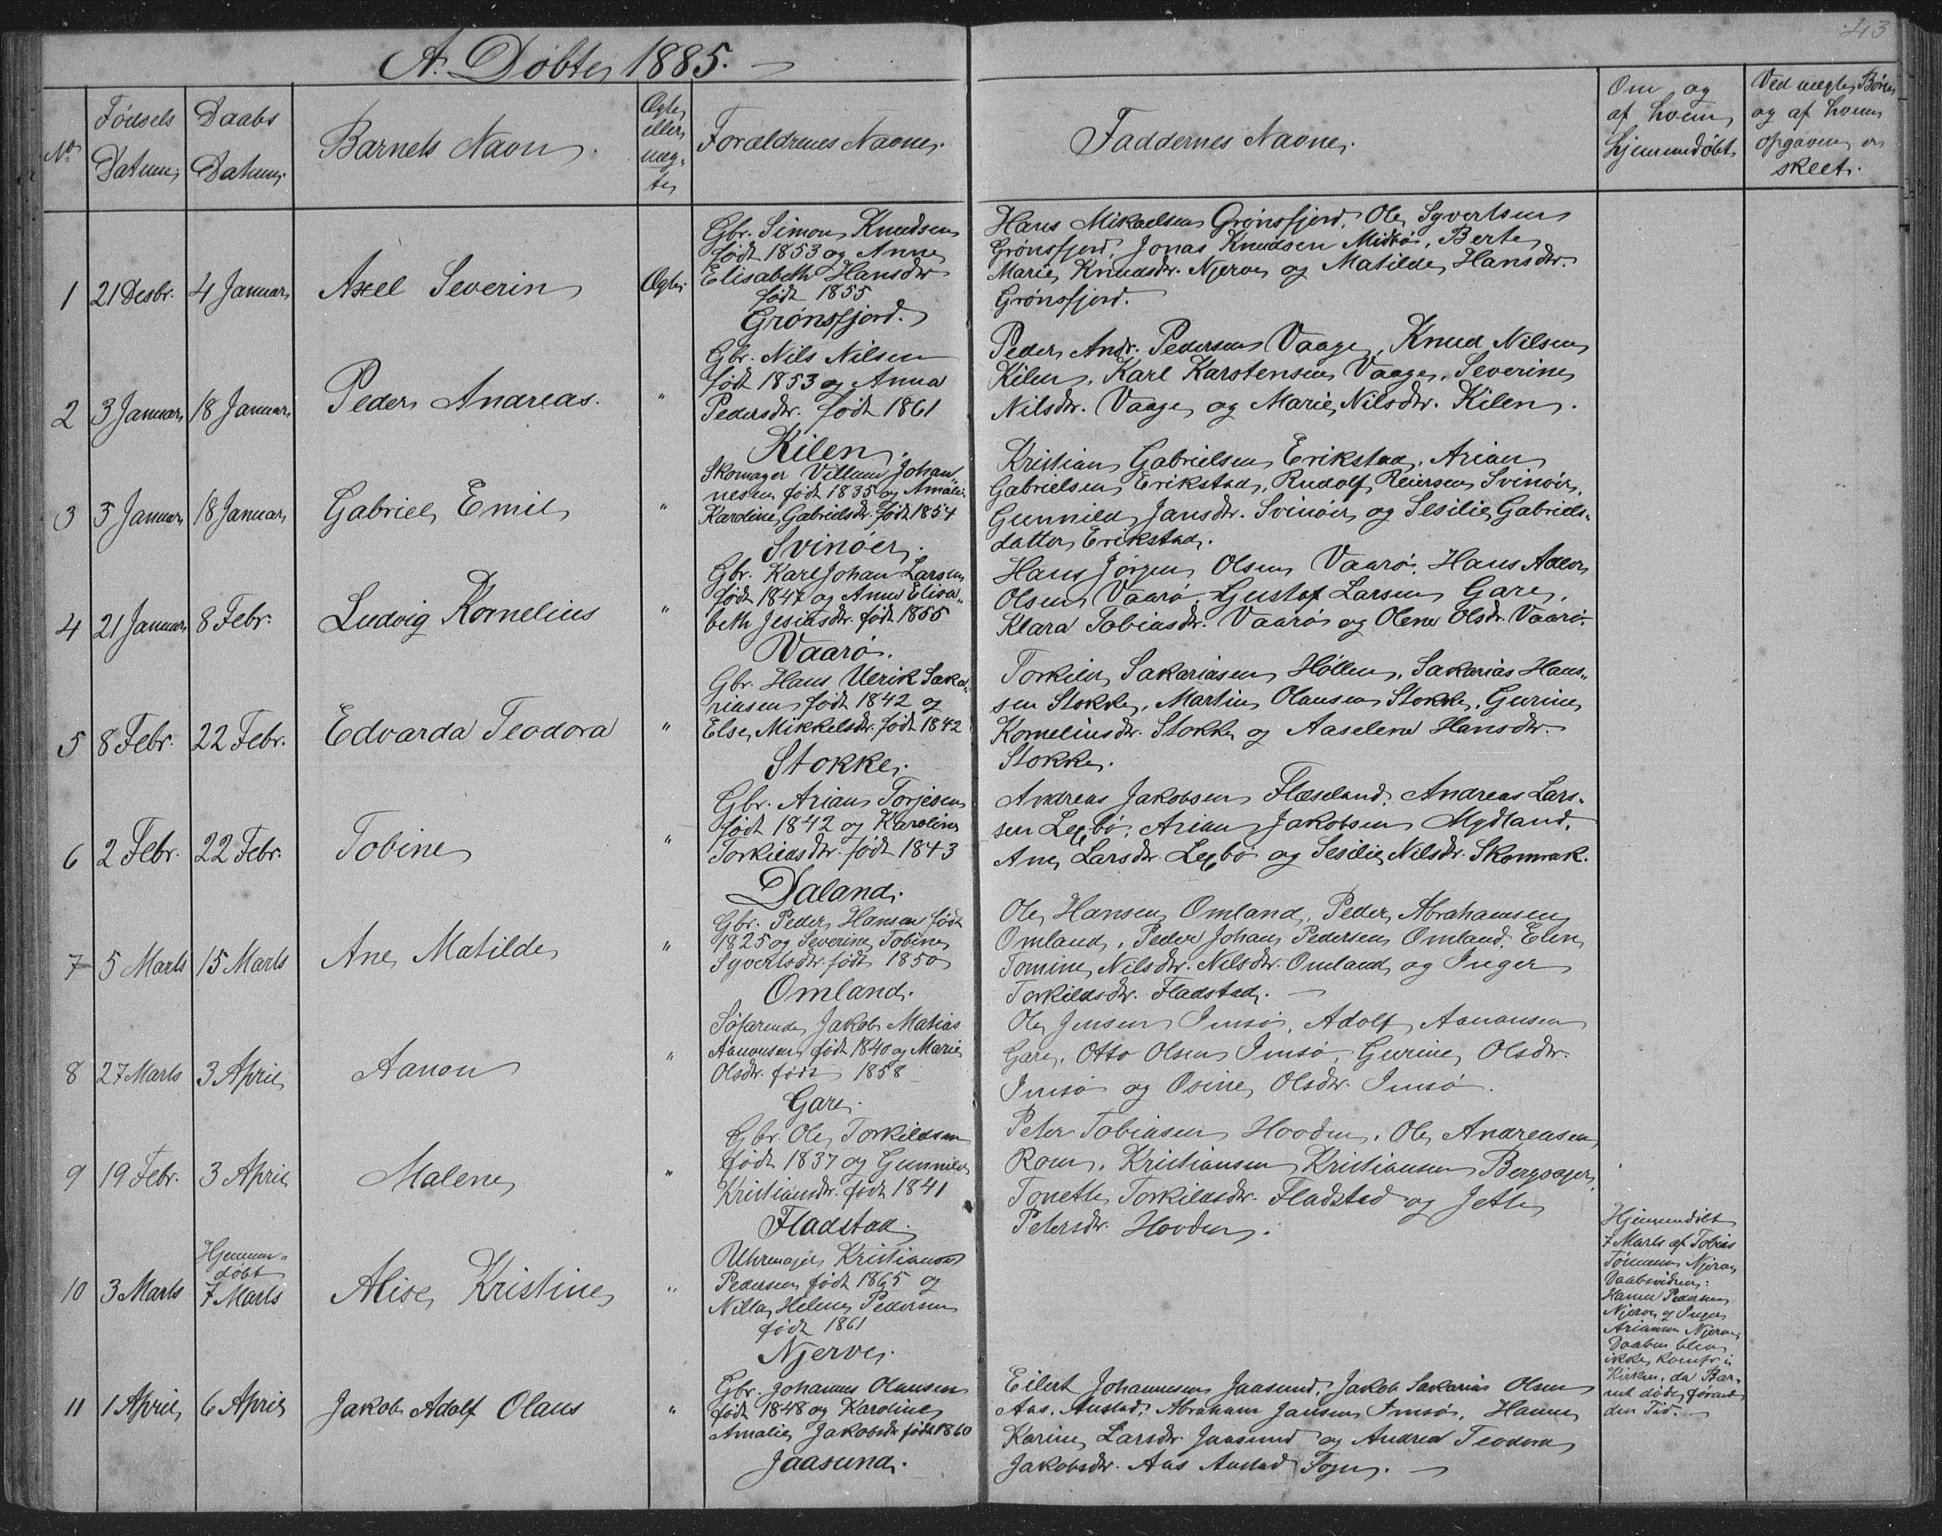 43
A. Døbte 1885.
No.
Fødsels Datum.
Daabs Datum.
Barnets Navn.
Ægte eller uægte
Forældrenes Navne.
Faddernes Navne.
Om og af hvem hjemmedøbt
Ved uægte Børn og af hvem opgaven er skeet.
1 21 Desbr. 4 Januar Axel Severin Ægte
Gbr. Simon Knudsen
født 1853 og Anne
Elisabeth Hansdtr.
født 1855
Grønsfjord.
Hans Mikaelsen Grønsfjord, Ole Syvertsen
Grønsfjord, Jonas Knudsen Midbø, Berte
Marie Knudsdtr. Njerve og Matilde Hansdtr.
Grønsfjord.
2 3 Januar 18 Januar Peder Andreas. "
Gbr. Nils Nilsen
født 1853 og Anna
Pedersdtr. født 1861
Kilen.
Peder Andr. Pedersen Vaage, Knud Nilsen
Kilen, Karl Karstensen Vaage, Severine
Nilsdtr. Vaage og Marie Nilsdtr. Kilen.
3 3 Januar 18 Januar Gabriel Emil "
Skomager Villum Johan-
nesen født 1835 og Amalie
Kardine Gabrielsdtr. født 1854
Svinøer.
Kristian Gabrielsen Erikstad, Arian
Gabrielsen Erikstad, Rudolf Reiersen Svinøir,
Gunnild Jansdtr. Svinøir og Sesilie Gabriels-
datter Erikstad.
4 21 Januar 8 Febr. Ludvig Kornelius "
Gbr. Karl Johan Larsen
født 1847 og Anne Elisa-
beth Jesiasdtr. født 1855
Vaarø.
Hans Jørgen Olsen Vaarø, Hans
Olsen Vaarø, Gustaf Larsen Gare,
Klara Tobiasdtr. Vaarø og Olene Olsdtr. Vaarø.
5 8 Febr. 22 Febr. Edvarda Teodora "
Gbr. Hans Ulrik Saka-
riasen født 1842 og
Else Mikkelsdtr. født 1842
Stokke.
Torkild Sakariasen Høllen, Sakarias Hans-
sen Stokke, Martin Olausen Stokke, Gurine
Korneliusdtr. Stokke og Aaselene Hansdtr.
Stokke.
6 2 Febr. 22 Febr. Tobine "
Gbr. Arian Torjesen
født 1842 og Karoline
Torkildsdtr. født 1843
Daland.
Andreas Jakobsen Flæseland, Andreas Lars-
sen Lexbø, Arian Jakobsen Mydland,
Ane Larsdtr. Lexbø og Sesilie Nilsdtr. Skomrak.
7 5 Marts 15 Marts Ane Matilde "
Gbr. Peder Hansen født
1825 og Severine Tobine
Syvertsdtr. født 1850
Omland.
Ole Hansen Omland, Peder Abrahamsen
Omland, Peder Johan Pedersen Omland, Elen
Tomine Nilsdtr. Nilsdtr. Omland og Inger
Torkildsdtr. Fladstad.
8 27 Marts 3 April Aanon "
Søfarende Jakob Matias
Aanonsen født 1840 og Marie
Olsdtr. født 1858
Gare.
Ole Jensen Imsø, Adolf Aanonsen
Gare, Otto Olsen Imsø, Gurine Olsdtr.
Imsø og Osine Olsdtr. Imsø.
9 19 Febr. 3 April Malene "
Gbr. Ole Torkildsen
født 1837 og Gunnild
Kristiansdtr. født 1841
Fladstad.
Peter Tobiasen Hovden, Ole Andreasen
Rom, Kristiansen Kristiansen Bergsager,
Tonette Torkildsdtr. Fladstad og Jette
Petersdtr. Hovden.
10 3 Marts Hjemme-
døbt
7 Marts Alise Kristine "
Uhrmager Kristian
Pedersen født 1865 og
Nilla Helene Pedersen
født 1861
Njerve.
Hjemmedøbt
7 Marts af Tobias
Njerve
Daabsvidner:
Hanne Pedersen
Njerve og Inger
Ariansen Njerve.
Daaben blev
ikke komfr. i
Kirken, da Bar-
net døde forend
den Tid.
11 1 April 6 April Jakob Adolf Olaus "
Gbr. Johannes Olausen
født 1848 og Karoline
Amalie Jakobsdtr. født 1860
Jaasund.
Eilert Johannesen Jaasund, Jakob Sakarias Olsen
Aas, Austad, Abraham Jansen Imsø, Hanne
Karine Larsdtr. Jaasund og Andrea Teodora
Jakobsdtr. Aas Austad Sogn.